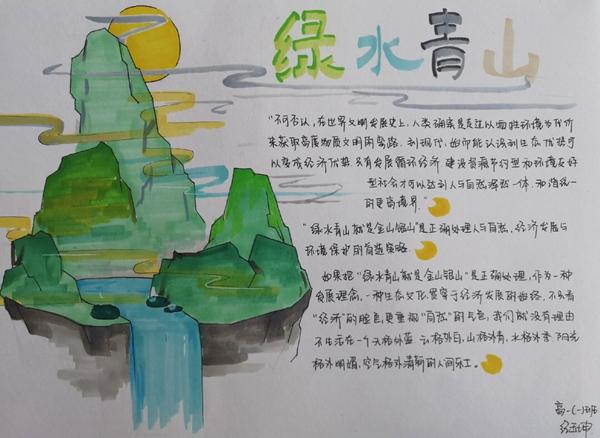 绿水青山
“不可否认，在世界文明发展史上，人类确实是走过以牺牲环境为代价
来获取高度物质文明的弯路。到现代，如何能认识到生态优势可
以变成经济优势，只有发展循环经济 建设资源节约型和环境友好
型社会才可以达到人与自然浑然一体、和谐统一
的更高境界。”
“绿水青山就是金山银山”是正确处理人与自然、经济发展与
环境保护的前进策略。
如果把“绿水青山就是金山银山”是正确处理，作为一种
发展理念，一种生态文化，贯穿于经济发展的始终，不只看
“经济”的脸色，更重视“自然”的气色，我们就没有理由
不生活在一个天格外蓝 云格外白，山格外青，水格外秀 阳光
格外明媚，空气格外清新的人间乐土。
高一(一)班